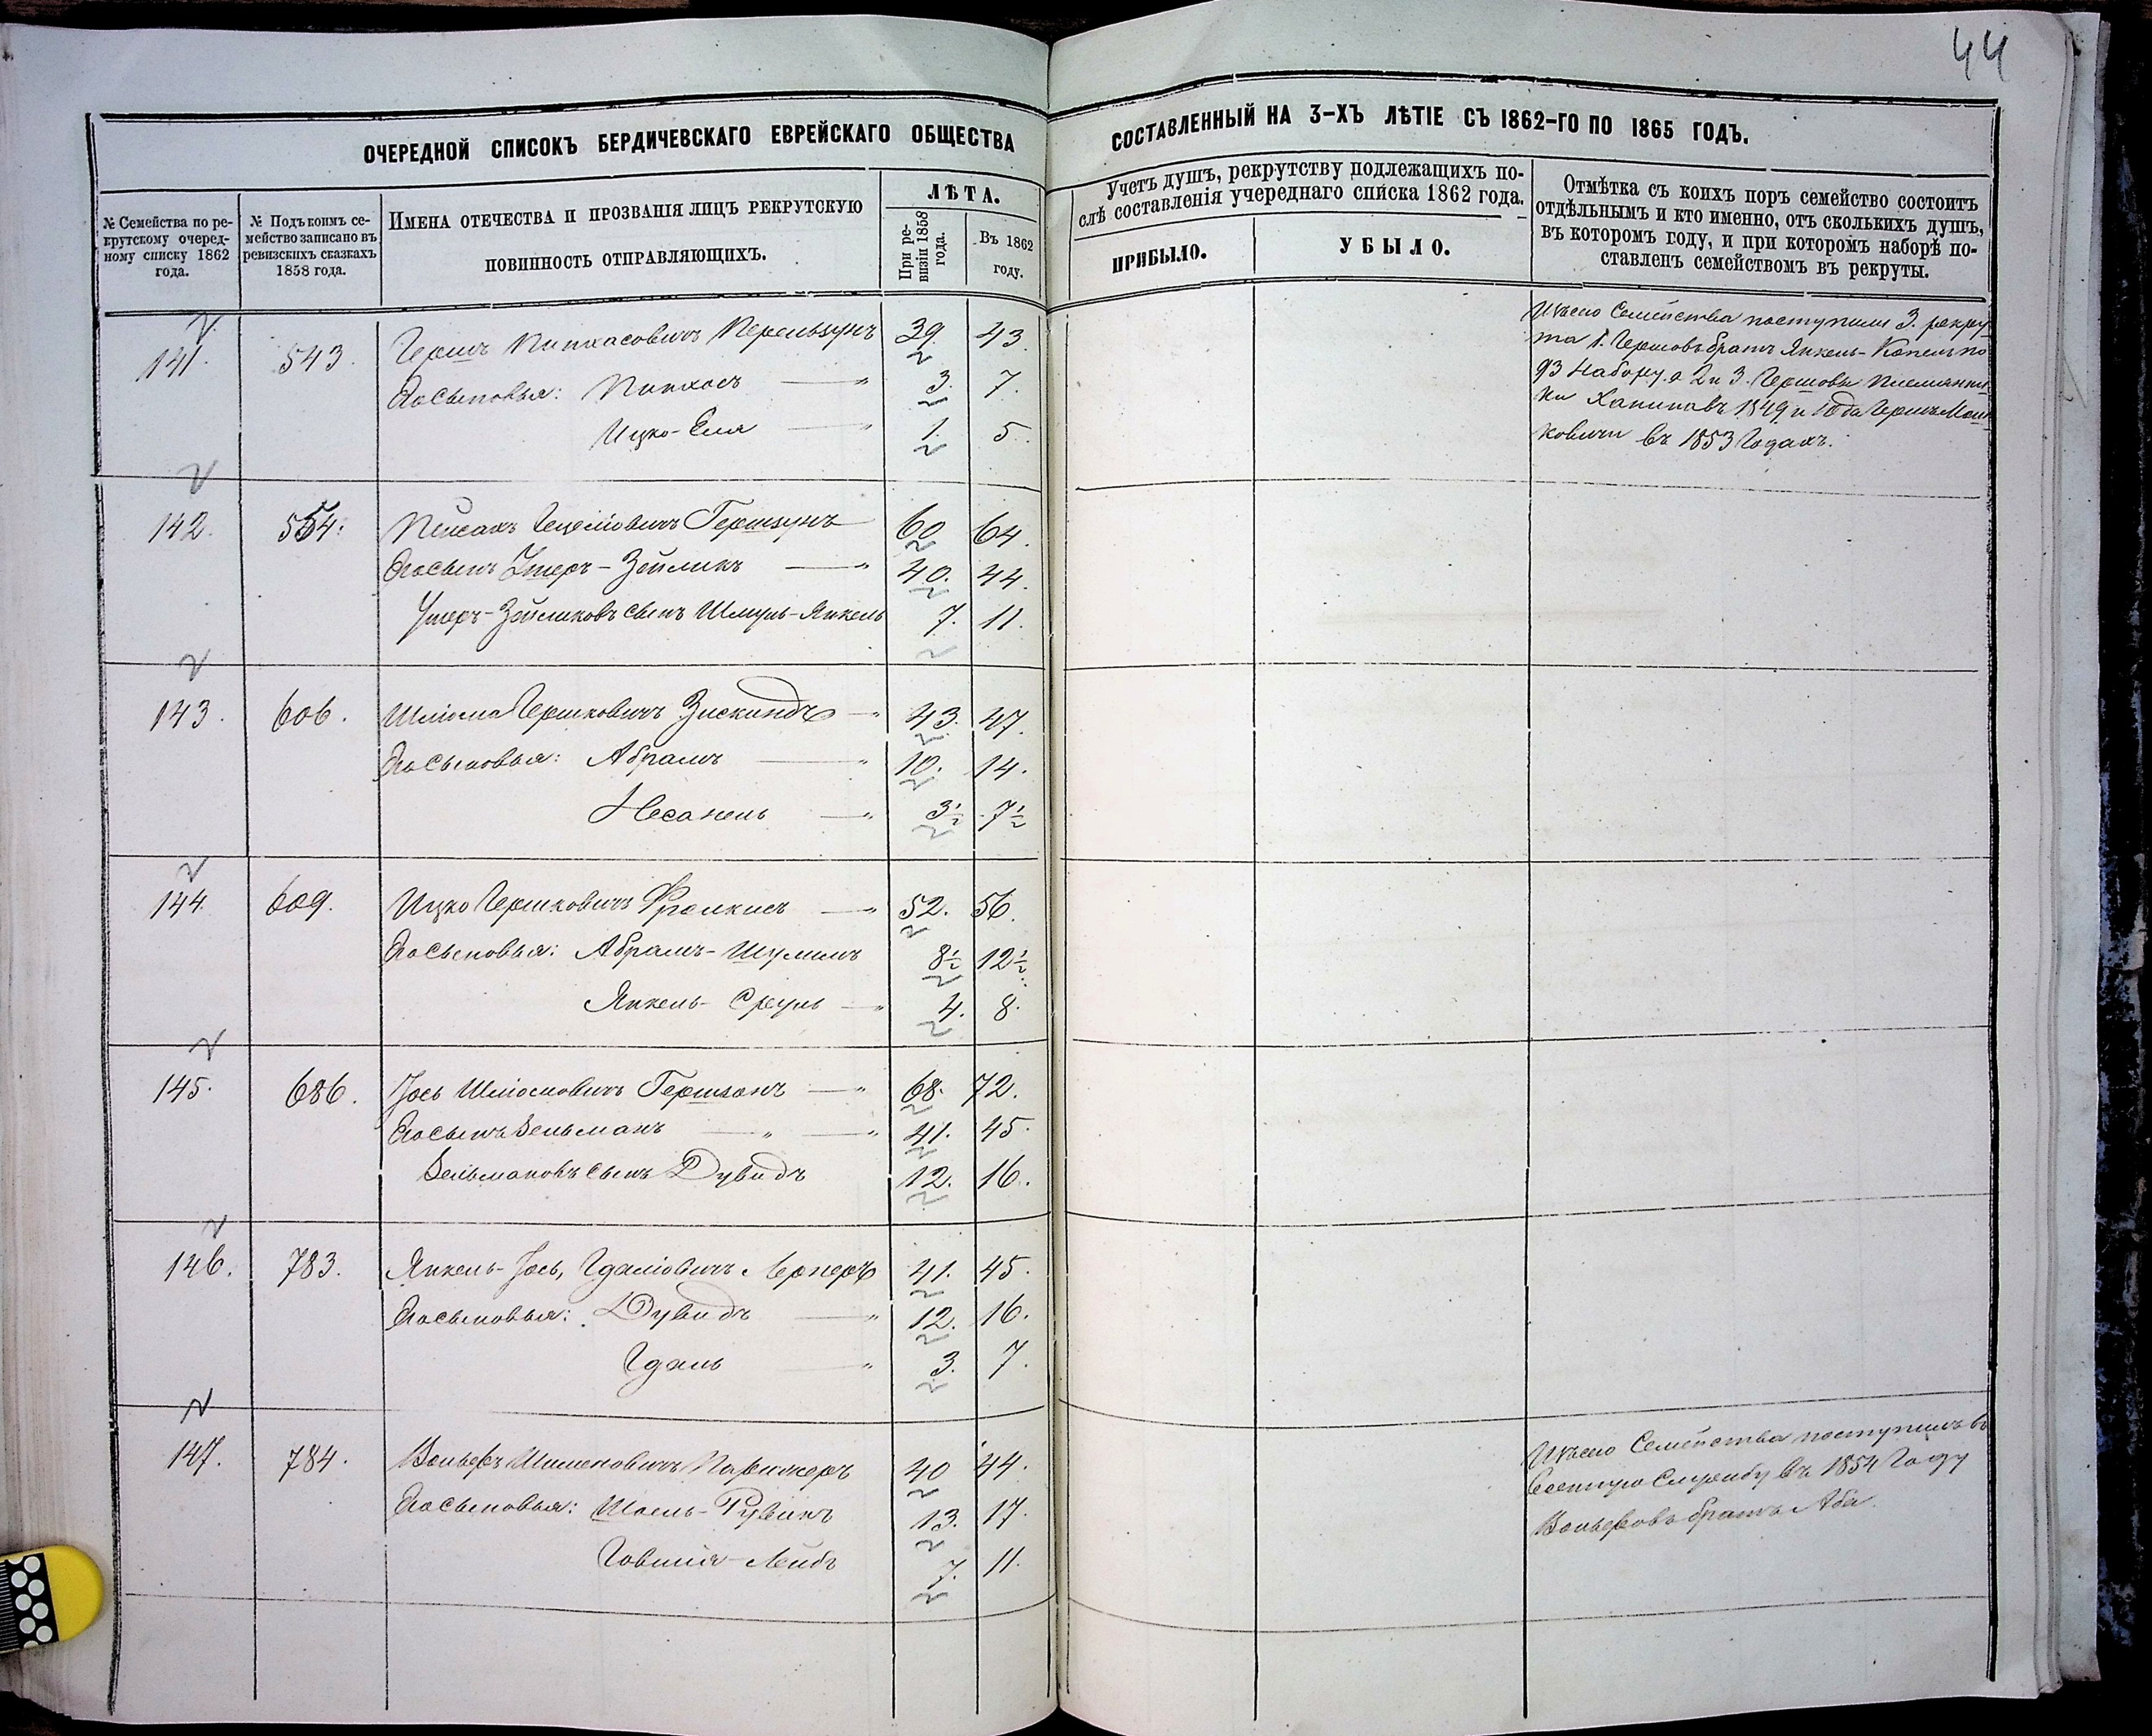 44
ОЧЕРЕДНОЙ СПИСОКЪ БЕРДИЧЕВСКАГО ЕВРЕЙСКАГО ОБЩЕСТВА СОСТАВЛЕННЫЙ НА 3-ХЪ ЛѢТІЕ СЪ 1862-ГО ПО 1865 ГОДЪ.
№ Семейства по ре-
крутскому очеред-
ному списку 1862
года.
№ Подъ коимъ се-
мейство записано въ
ревизскихъ сказкахъ
1858 года.
ИМЕНА ОТЕЧЕСТВА И ПРОЗВАНІЯ ЛИЦЪ РЕКРУТСКУЮ
ПОВИННОСТЬ ОТПРАВЛЯЮЩИХЪ.
ЛѢТА.
При ре-
визіи 1858
года.
Въ 1862
году.
Учетъ душъ, рекрутству подлежащихъ по-
слѣ составленія учереднаго списка 1862 года.
ПРИБЫЛО.
УБЫЛО.
Отмѣтка съ коихъ поръ семейство состоитъ
отдѣльнымъ и кто именно, отъ сколькихъ душъ,
въ котором году, и при которомъ наборѣ по-
ставленъ семействомъ въ рекруты.
141. 543. Гершъ Пинхасовичъ Перельцунъ 39 43
Его сыновья: Пинхасъ — " 3. 7.
Ицко-Еля — " 1. 5.
Изъ сего Семейства поступили 3. рекру
та 1. Гершовъ братъ Янкель-Копель по
93 Набору, а 2 и 3. Гершовы племянни
ки въ 1849 и Гершъ
ковичи въ 1853 Годахъ.
142. 554. Пейсахъ Гершзунъ 60 64.
Его сынъ Утеръ-Зейликъ — " 40. 44.
Утеръ-Зейликовъ сынъ Шмуль-Янкель 7. 11.
143. 606. Шліома Гершковичъ Зискиндъ — " 43. 47.
Его сыновья: Абрамъ — " 10. 14.
Несанель — " 3½ 7½
144. 609. Ицко Гершковичъ Фроимкисъ — " 52. 56.
Его сыновья: Абрамъ-Шулимъ 8½ 12½
Янкель-Сруль — " 4. 8.
145. 686. Іось Шліомовичъ Гершзонъ — " 68. 72.
Его сынъ Зельманъ — " — " 41. 45.
Зельмановъ сынъ Дувидъ 12. 16.
146. 783. Янкель-Іось, Гдаліовичъ Лернеръ 41. 45.
Его сыновья: Дувидъ — " 12. 16.
Гдаль — " 3. 7.
147. 784. Вольфъ Шименовичъ Парижеръ 40 44.
Его сыновья: Шоель-Рувинъ 13. 17.
Говшія-Лейбъ 7. 11.
Изъ сего Семейства поступилъ въ
военную Службу въ 1854 Году
Вольфовъ братъ Аба.